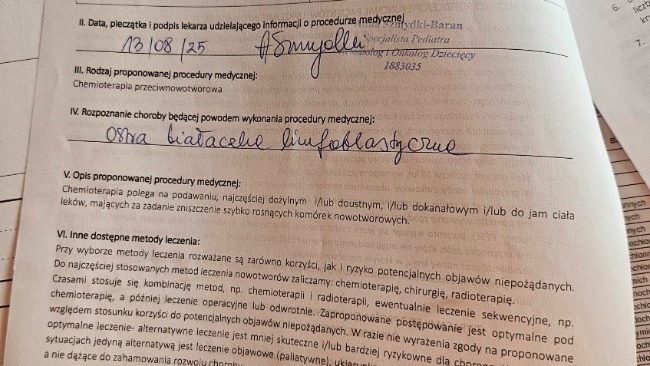 II. Data, pieczątka i podpis lekarza udzielającego informacji o procedurze medycznej
13/08/25
Specjalista Pediatra
i Onkolog Dziecięcy
1883035
III. Rodzaj proponowanej procedury medycznej:
Chemioterapia przeciwnowotworowa
IV. Rozpoznanie choroby będącej powodem wykonania procedury medycznej:
Ostra białaczka limfoblastyczna
V. Opis proponowanej procedury medycznej:
Chemioterapia polega na podawaniu, najczęściej dożylnym i/lub doustnym, i/lub dokanałowym i/lub do jam ciała
leków, mających za zadanie zniszczenie szybko rosnących komórek nowotworowych.
VI. Inne dostępne metody leczenia:
Przy wyborze metody leczenia rozważane są zarówno korzyści, jak i ryzyko potencjalnych objawów niepożądanych.
Do najczęściej stosowanych metod leczenia nowotworów zaliczamy: chemioterapię, chirurgię, radioterapię.
Czasami stosuje się kombinację metod, np. chemioterapii i radioterapii, ewentualnie leczenie sekwencyjne, np.
chemioterapię, a później leczenie operacyjne lub odwrotnie. Zaproponowane postępowanie jest optymalne pod
względem stosunku korzyści do potencjalnych objawów niepożądanych. W razie nie wyrażenia zgody na proponowane
optymalne leczenie- alternatywne leczenie jest mniej skuteczne i/lub bardziej ryzykowne dla
sytuacjach jedyną alternatywą jest leczenie objawowe (paliatywne),
a nie dążące do zahamowania rozwoju choroby